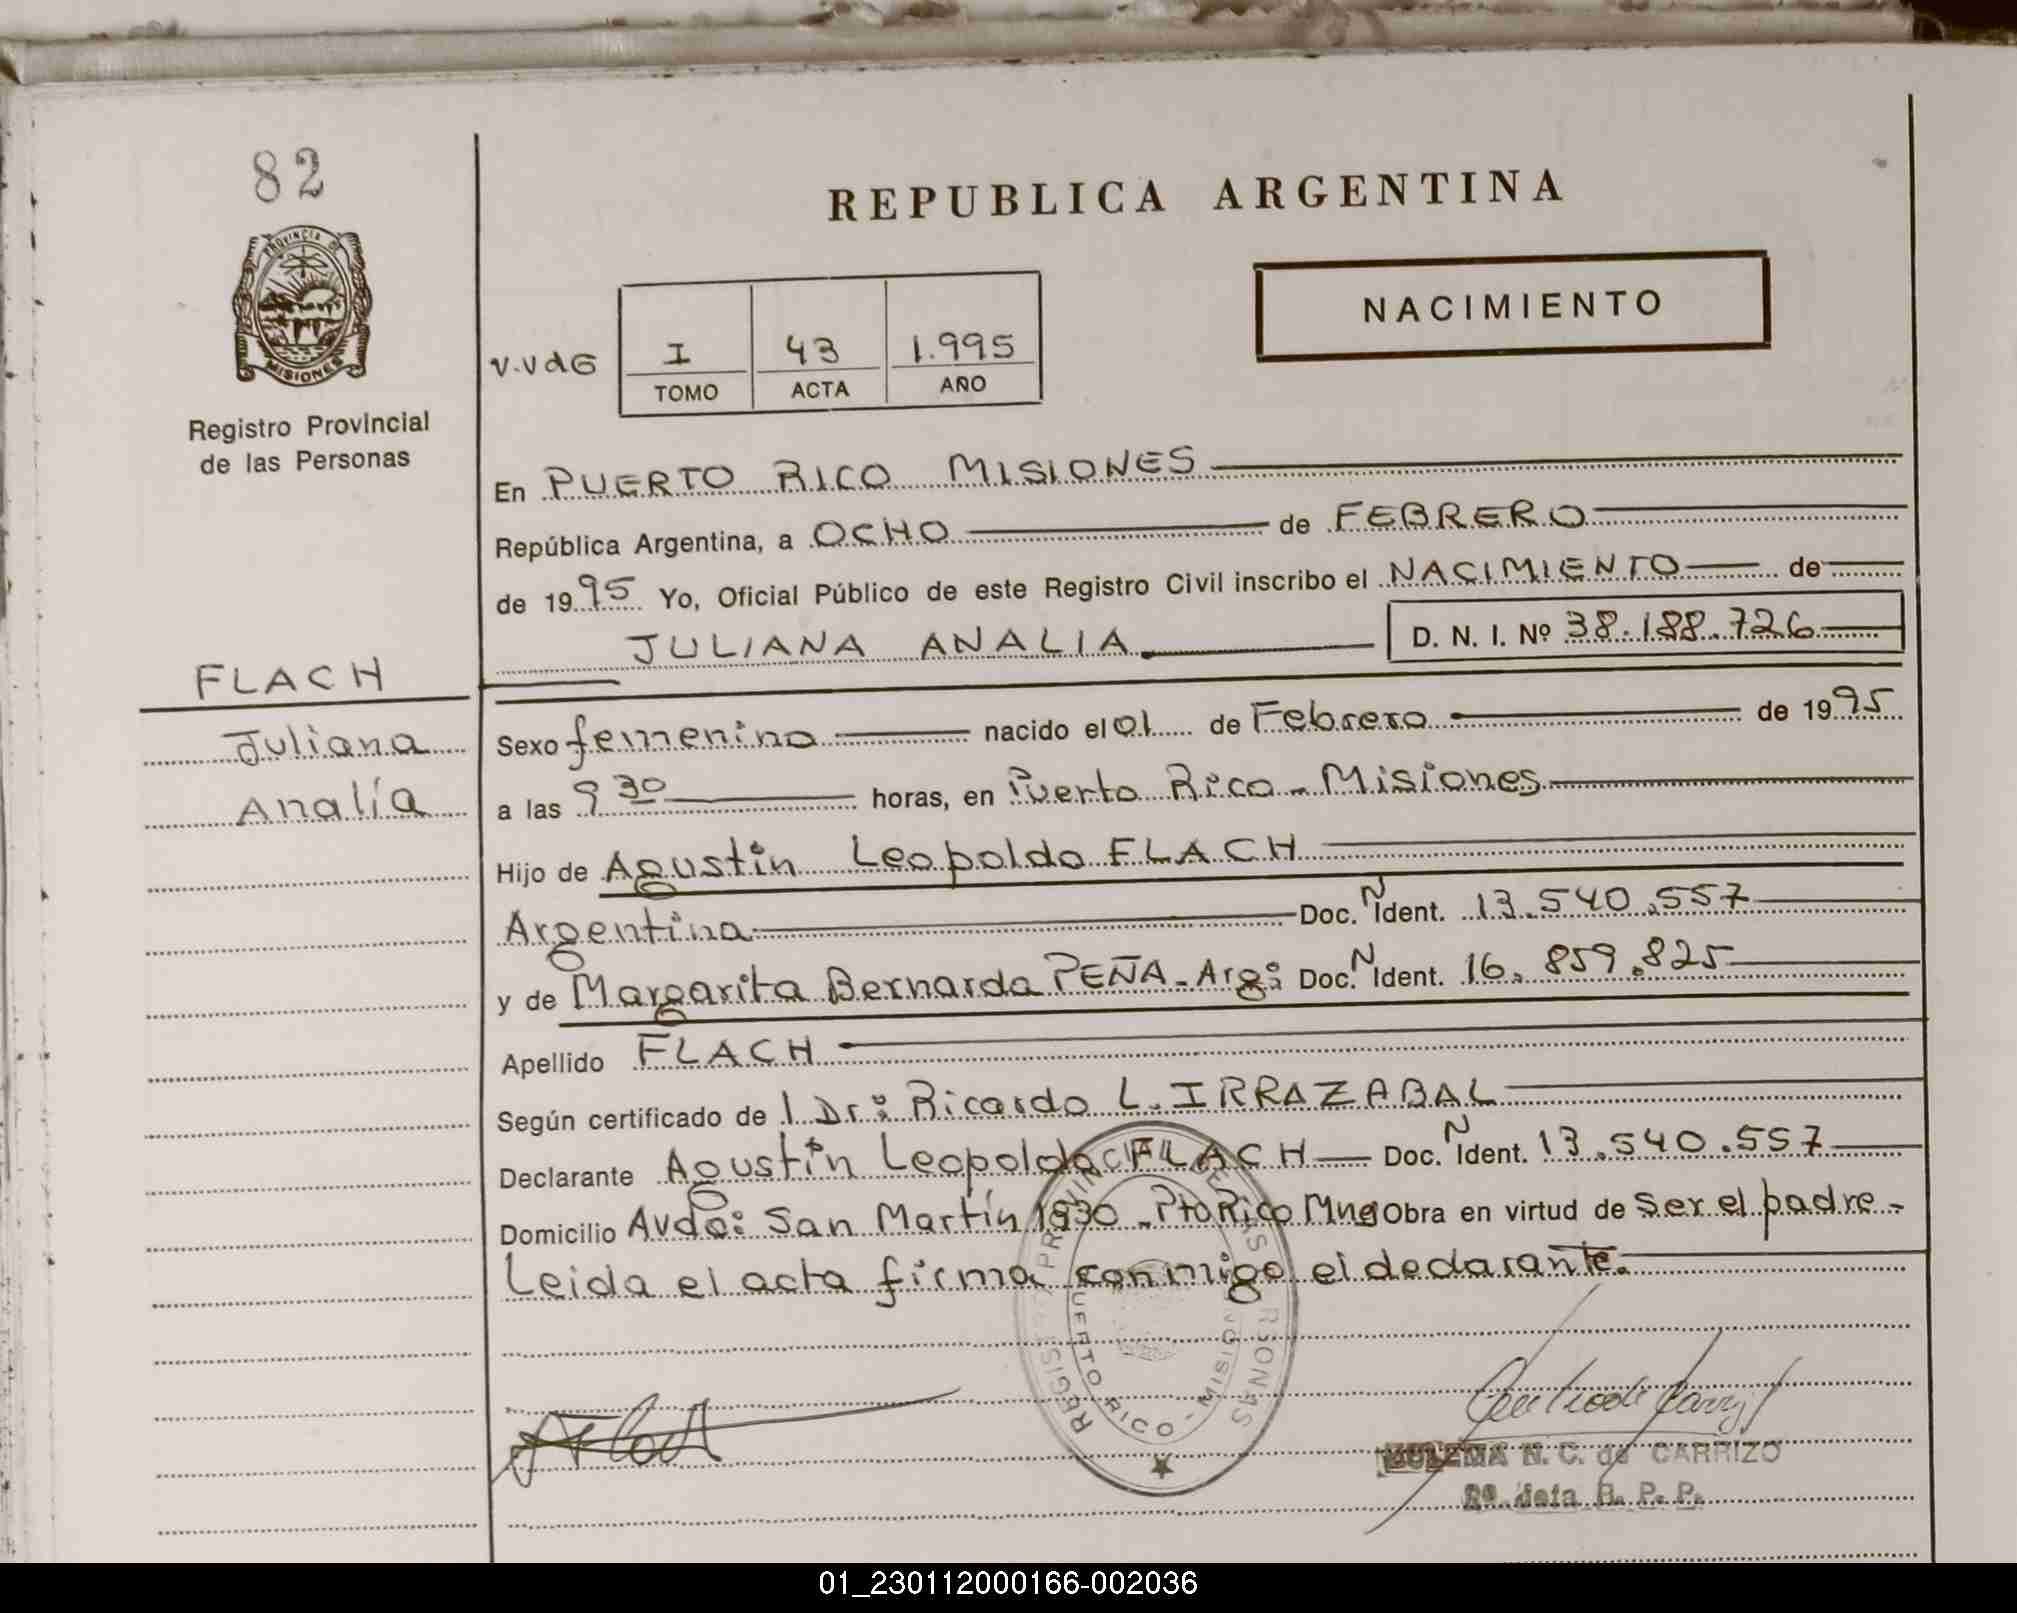 82
PROVINCIA DE
MISIONES
Registro Provincial
de las Personas
REPUBLICA ARGENTINA
NACIMIENTO
V.VdG
I 43 1.995
TOMO ACTA AÑO
En PUERTO RICO MISIONES
República Argentina, a OCHO de FEBRERO
de 1995 Yo, Oficial Público de este Registro Civil inscribo el NACIMIENTO de
JULIANA ANALIA D. N. I. Nº 38.188.726
FLACH
Juliana
Analía
Sexo femenino nacido el 01 de Febrero de 1995
a las 9 30 horas, en Puerto Rico - Misiones
Hijo de Agustín Leopoldo FLACH
Argentina Doc. N Ident. 13.540.557
y de Margarita Bernarda PEÑA - Arg: Doc. N Ident. 16.859.825
Apellido FLACH
Según certificado de l Dr: Ricardo L. IRRAZABAL
Declarante Agustín Leopoldo FLACH Doc. N Ident. 13.540.557
Domicilio Avda: San Martín 1930 - Pto Rico Mnes Obra en virtud de ser el padre -
Leida el acta firma conmigo el declarante.
PUERTO RICO - MISIONES
N. C. de CARRIZO
R. P. P.
01_230112000166-002036